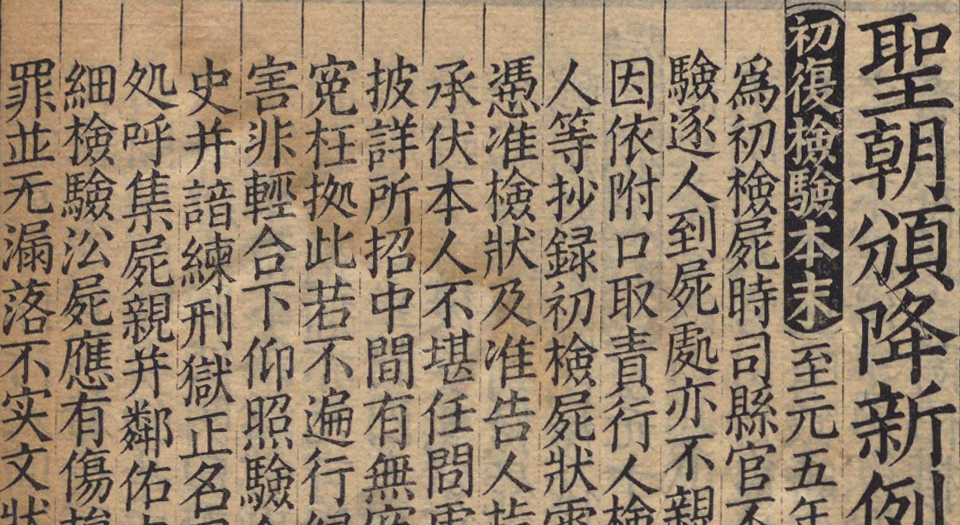 聖朝頒降新例
初復檢驗本末 至元五年
爲初檢屍時司縣官不
驗逐人到屍處亦不親
因依附口取責行人檢
人等抄録初檢屍狀
憑准檢狀及准告人
承伏本人不堪任問
披詳所招中間有無
寃枉拠此若不遍行
害非輕合下仰照驗
史并諳練刑獄正名
処呼集屍親并鄰佑
細檢驗沿屍應有傷
罪並无漏落不实文狀